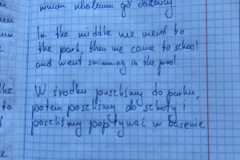 In the middle we went to
the park, then we come to school
and went swimming in the pool
W środku poszliśmy do parku,
potem poszliśmy do szkoły i
poszliśmy popływać w basenie